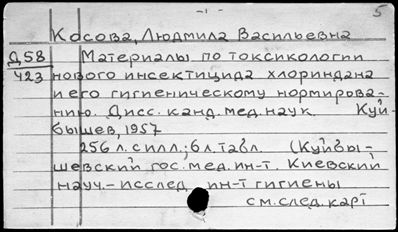 -1-
5
Косова, Людмила Васильевна
Д58 Материалы по токсикологии
423 нового инсектицида хлориндана
и его гигиеническому нормирова-
нию. Дисс. канд. мед. наук. Куй-
бышев, 1957
256 л. с илл.; 6 л. табл. (Куйбы-
шевский гос. мед. ин-т. Киевский
науч.-исслед. ин-т гигиены
см. след. карт